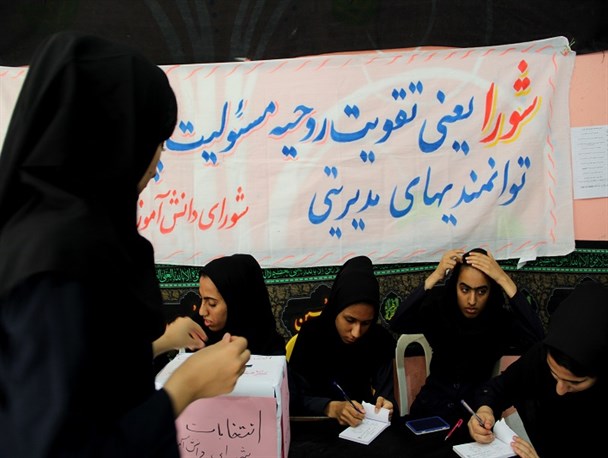 شورا یعنی تقویت روحیه مسئولیت
توانمندیهای مدیریتی
شورای دانش آموز
انتخابات
شورای دانش آموز